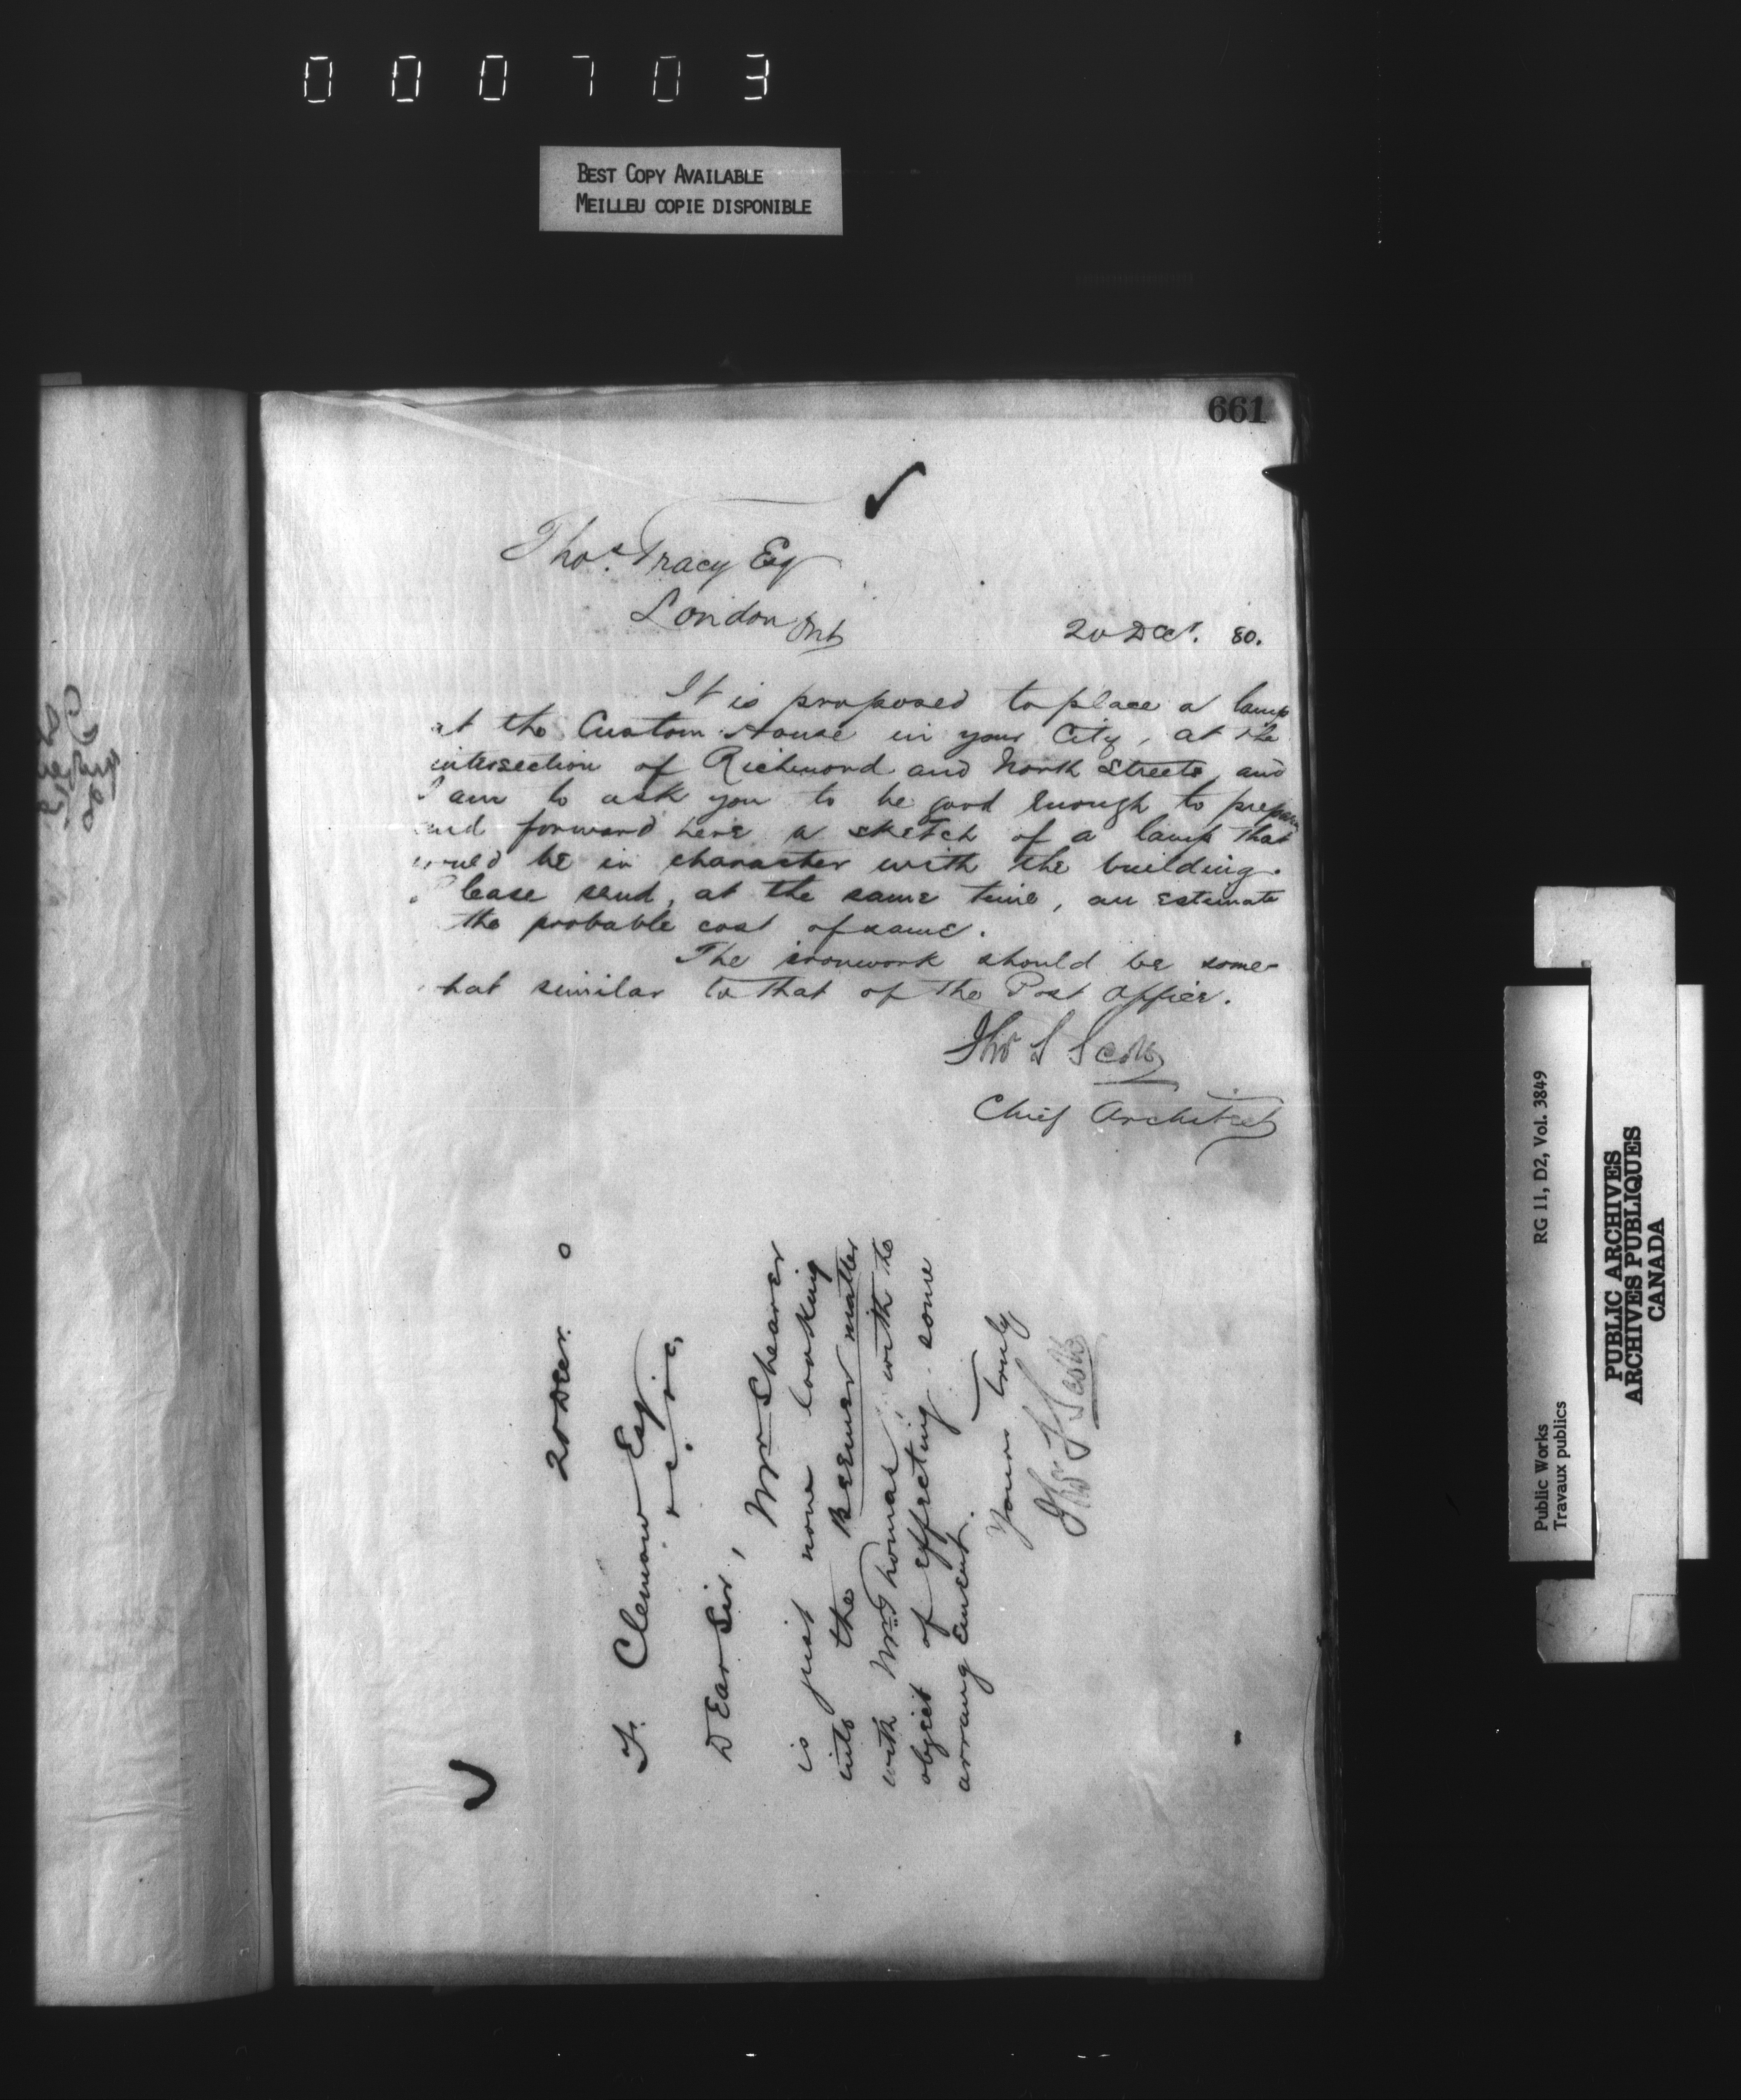 000703
BEST COPY AVAILABLE
MEILLEU COPIE DISPONIBLE
661
Thos. Tracy Esq
London Ont
20 Decr. 80.
It is proposed to place a lamp
at the Custom House in your City, at the
intersection of Richmond and North Streets, and
I am to ask you to be good enough to prepare
and forward here a sketch of a lamp that
would be in character with the building.
Please send, at the same time, an estimate
the probable cost of same.
The ironwork should be some-
hat similar to that of the Post Office.
Thos S Scott
Chief Architect
20 Decr. 0
F. Clemow Esq
&c, &c,
Dear Sir,
Mr Shearer
is just now looking
into the matter
with Mr Thomas, with the
object of effecting some
arrangement.
Yours truly
Thos S Scott
Public Works
Travaux publics
RG 11, D2, Vol. 3849
PUBLIC ARCHIVES
ARCHIVES PUBLIQUES
CANADA